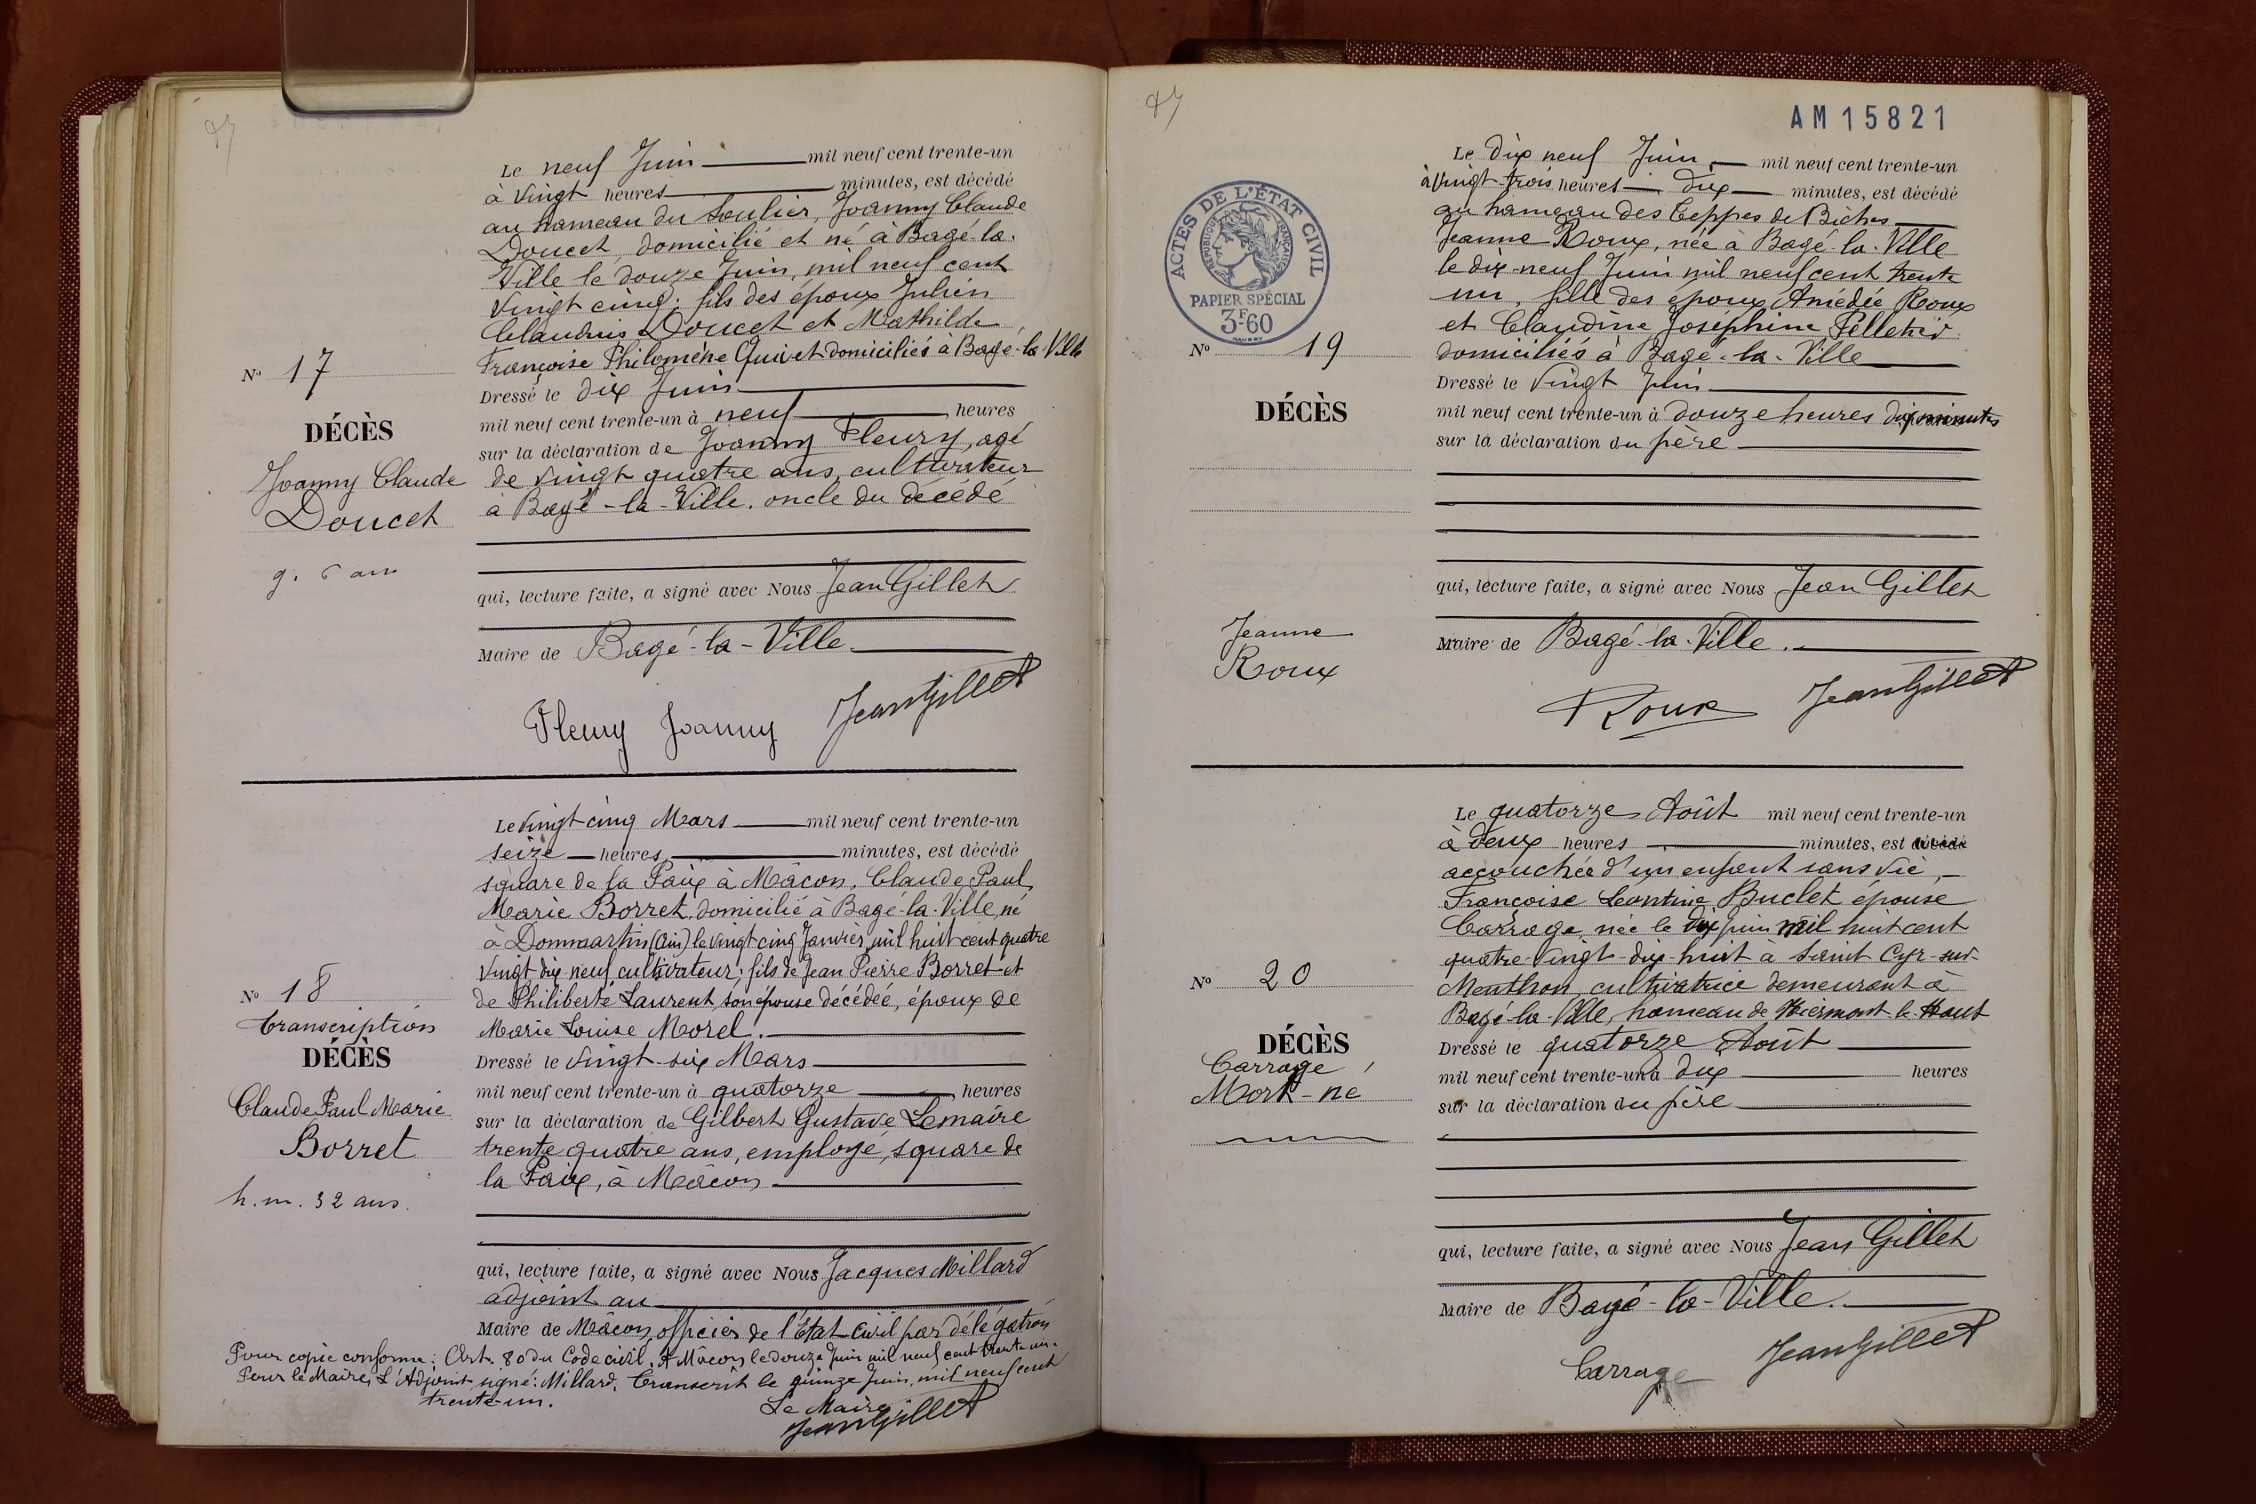 Le neuf Juin mil neuf cent trente-un
à vingt heures minutes, est décédé
au hameau du Soulier, Joanny Claude
Doucet, domicilié et né à Bagé-la-
Ville le douze Juin, mil neuf cent
vingt cinq; fils des époux Julien
Claudius Doucet et Mathilde
Françoise Philomène Quivet domiciliés à Bagé-la-Ville
Dressé le dix Juin
mil neuf cent trente-un à neuf heures
sur la déclaration de Joanny Fleury, agé
de vingt quatre ans, cultivateur
à Bagé-la-Ville. oncle du décédé
qui, lecture faite, a signé avec Nous Jean Gillet
Maire de Bagé-la-Ville.
Fleury Joanny Jean Gillet
No 17
DÉCÈS
Joanny Claude
Doucet
g. 6 ans
Le vingt cinq Mars mil neuf cent trente-un
seize heures minutes, est décédé
square de la Paix à Mâcon, Claude Paul
Marie Borret, domicilié à Bagé-la-Ville, né
à Dommartin (Ain) le vingt cinq Janvier mil huit cent quatre
vingt dix neuf, cultivateur; fils de Jean Pierre Borret et
de Philiberte Laurent, son épouse décédée, époux de
Marie Louise Morel.
Dressé le vingt-six Mars
mil neuf cent trente-un à quatorze heures
sur la déclaration de Gilbert Gustave Lemaire
trente quatre ans, employé, square de
la Paix, à Mâcon
qui, lecture faite, a signé avec Nous Jacques Millard
adjoint au
Maire de Mâcon, officier de l'Etat Civil par délégation
Pour copie conforme: Art. 80 du Code civil. A Mâcon le douze Juin mil neuf cent trente-un.
Pour le Maire, L'Adjoint, signé: Millard. Transcrit le quinze Juin mil neuf cent
trente-un.
Le Maire
Jean Gillet
No 18
Transcription
DÉCÈS
Claude Paul Marie
Borret
h. m. 32 ans.
AM15821
Le dix neuf Juin mil neuf cent trente-un
à vingt-trois heures dix minutes, est décédé
au hameau des Ceppes de Biches
Jeanne Roux, née à Bagé-la-Ville
le dix-neuf Juin mil neuf cent trente
un, fille des époux Amédée Roux
et Claudine Joséphine Pelletier
domiciliés à Bagé-la-Ville
Dressé le vingt Juin
mil neuf cent trente-un à douze heures dix minutes
sur la déclaration du père
qui, lecture faite, a signé avec Nous Jean Gillet
Maire de Bagé-la-Ville.
Roux Jean Gillet
ACTES DE L'ÉTAT CIVIL
RÉPUBLIQUE FRANÇAISE
PAPIER SPÉCIAL
3F-60
No 19
DÉCÈS
Jeanne
Roux
Le quatorze Août mil neuf cent trente-un
à deux heures minutes, est décédé
accouchée d'un enfant sans vie,
Françoise Léontine Buclet épouse
Carrage, née le dix juin mil huit cent
quatre-vingt-dix-huit à Saint Cyr-sur-
Menthon, cultivatrice demeurant à
Bagé-la-Ville, hameau de Hiermont-le-Haut
Dressé le quatorze Août
mil neuf cent trente-un à dix heures
sur la déclaration du père
qui, lecture faite, a signé avec Nous Jean Gillet
Maire de Bagé-la-Ville.
Carrage Jean Gillet
No 20
DÉCÈS
Carrage
Mort-né